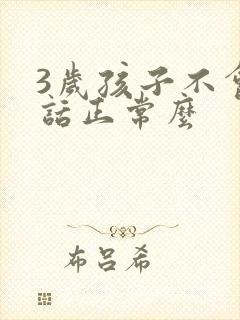 3歲孩子不會
話正常麼
布呂希